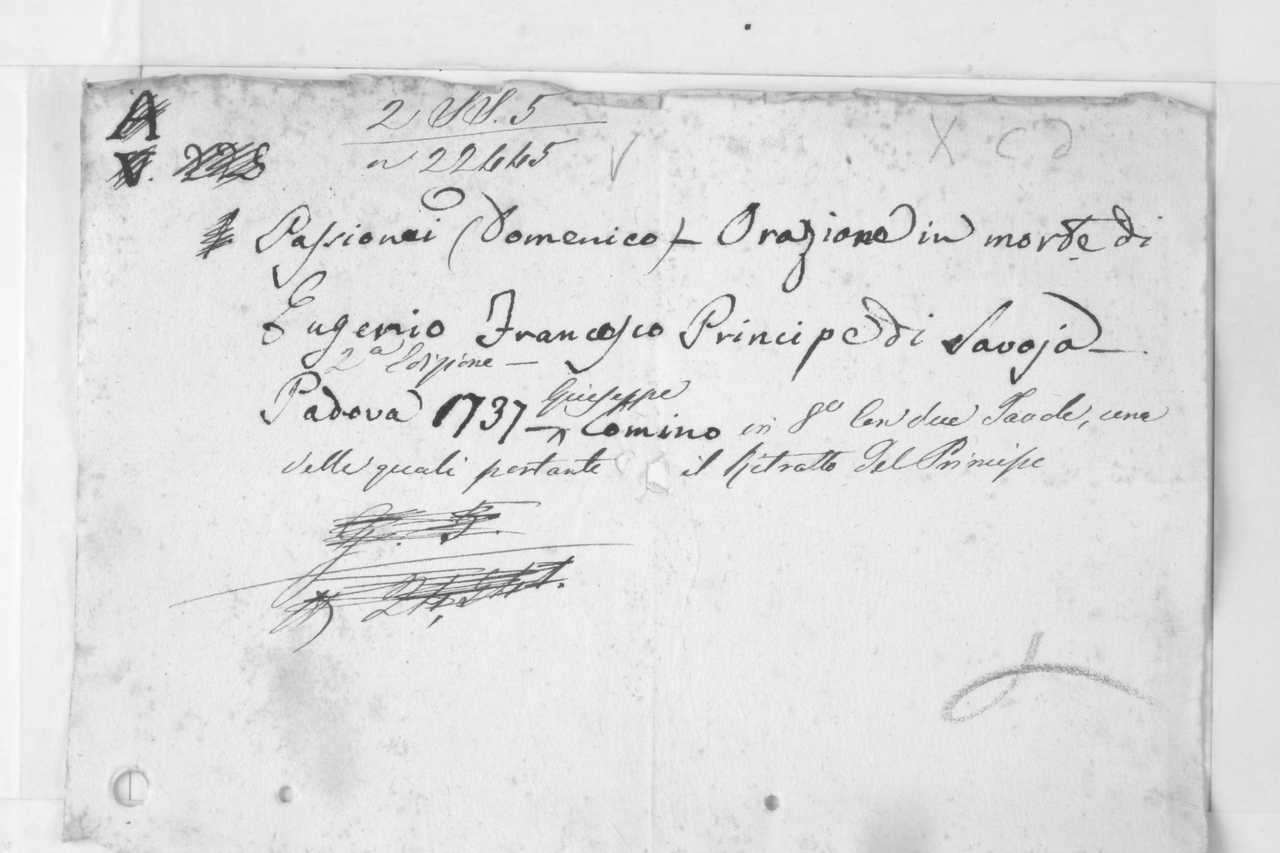 A
2 SS. 5
n 22445
X C d
Passionei (Domenico) – Orazione in morte di
Eugenio Francesco Principe di Savoja –
2ª Edizione –
Padova 1737 – Giuseppe Comino in 8º Con due Tavole, una
delle quali portante il Ritratto del Principe